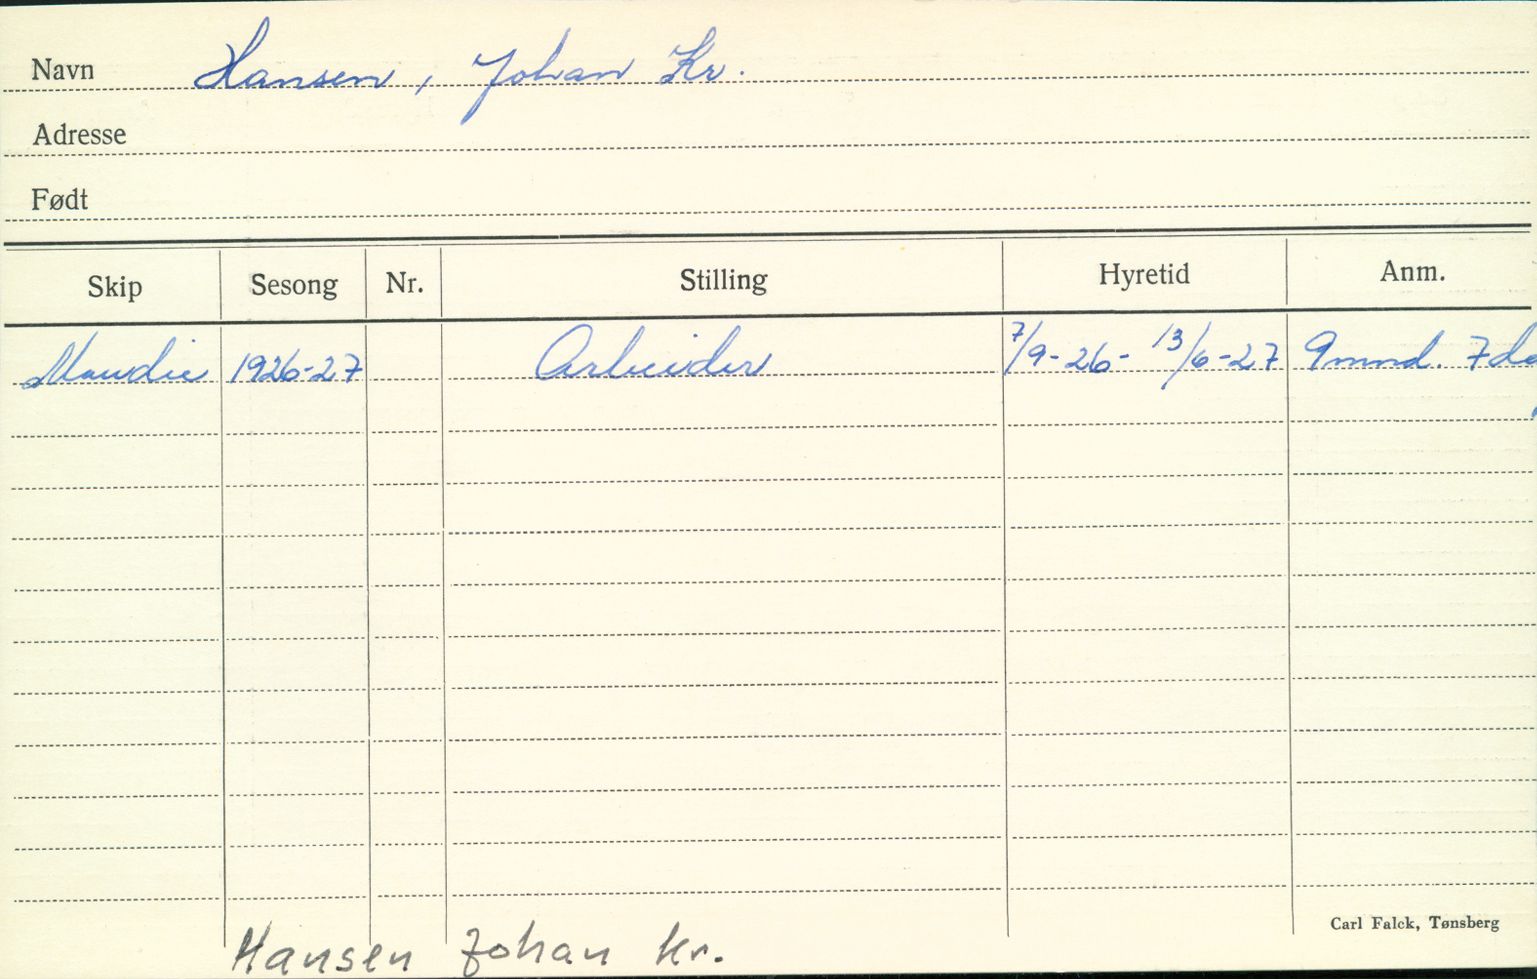 Navn Hansen, Johan Kr.
Adresse
Født
Skip Sesong Nr. Stilling Hyretid Anm.
Maudie 1926-27 Arbeider 7/9-26- 13/6-27 9 mnd. 7 da
Carl Falck, Tønsberg
Hansen Johan Kr.